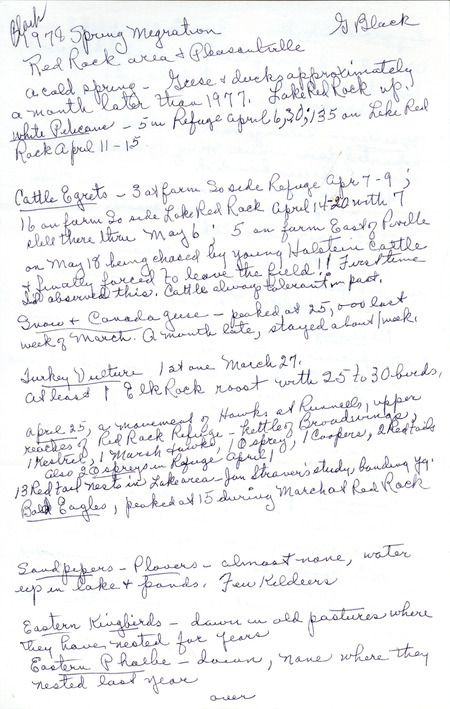 Black
1978 Spring Migration G Black
Red Rock area & Pleasantville
a cold spring - Geese & ducks approximately
a month later than 1977. Lake Red Rock up.
White Pelicans - 5 in Refuge April 6, 30; 135 on Lake Red
Rock April 11-15.
Cattle Egrets - 3 at farm So side Refuge Apr 7-9;
16 on farm So side Lake Red Rock April 14-20 with 7
still there thru May 6; 5 on farm East of Pville
on May 18 being chased by young Holstein cattle
& finally forced to leave the field!! First time
I'd observed this. Cattle always tolerant in past.
Snow & Canada geese - peaked at 25,000 last
week of March. A month late, stayed about 1 week.
Turkey Vulture 1st one March 27.
At least 1 Elk Rock roost with 25 to 30 birds.
April 25, a movement of Hawks at Runnells, upper
reaches of Red Rock Refuge - kettle of Broadwings,
1 Kestrel, 1 Marsh Hawk, 1 Osprey, 1 Coopers, 2 Red Tails
also 2 Ospreys in Refuge April 1
13 Red Tail nests in Lake area - Jon Straver's study, banding yg.
Bald Eagles, peaked at 15 during March at Red Rock
Sandpipers - Plovers - almost none, water
up in lake & ponds. Few Kildeers
Eastern Kingbirds - down in old pastures where
they have nested for years
Eastern Phoebe - down, none where they
nested last year
over